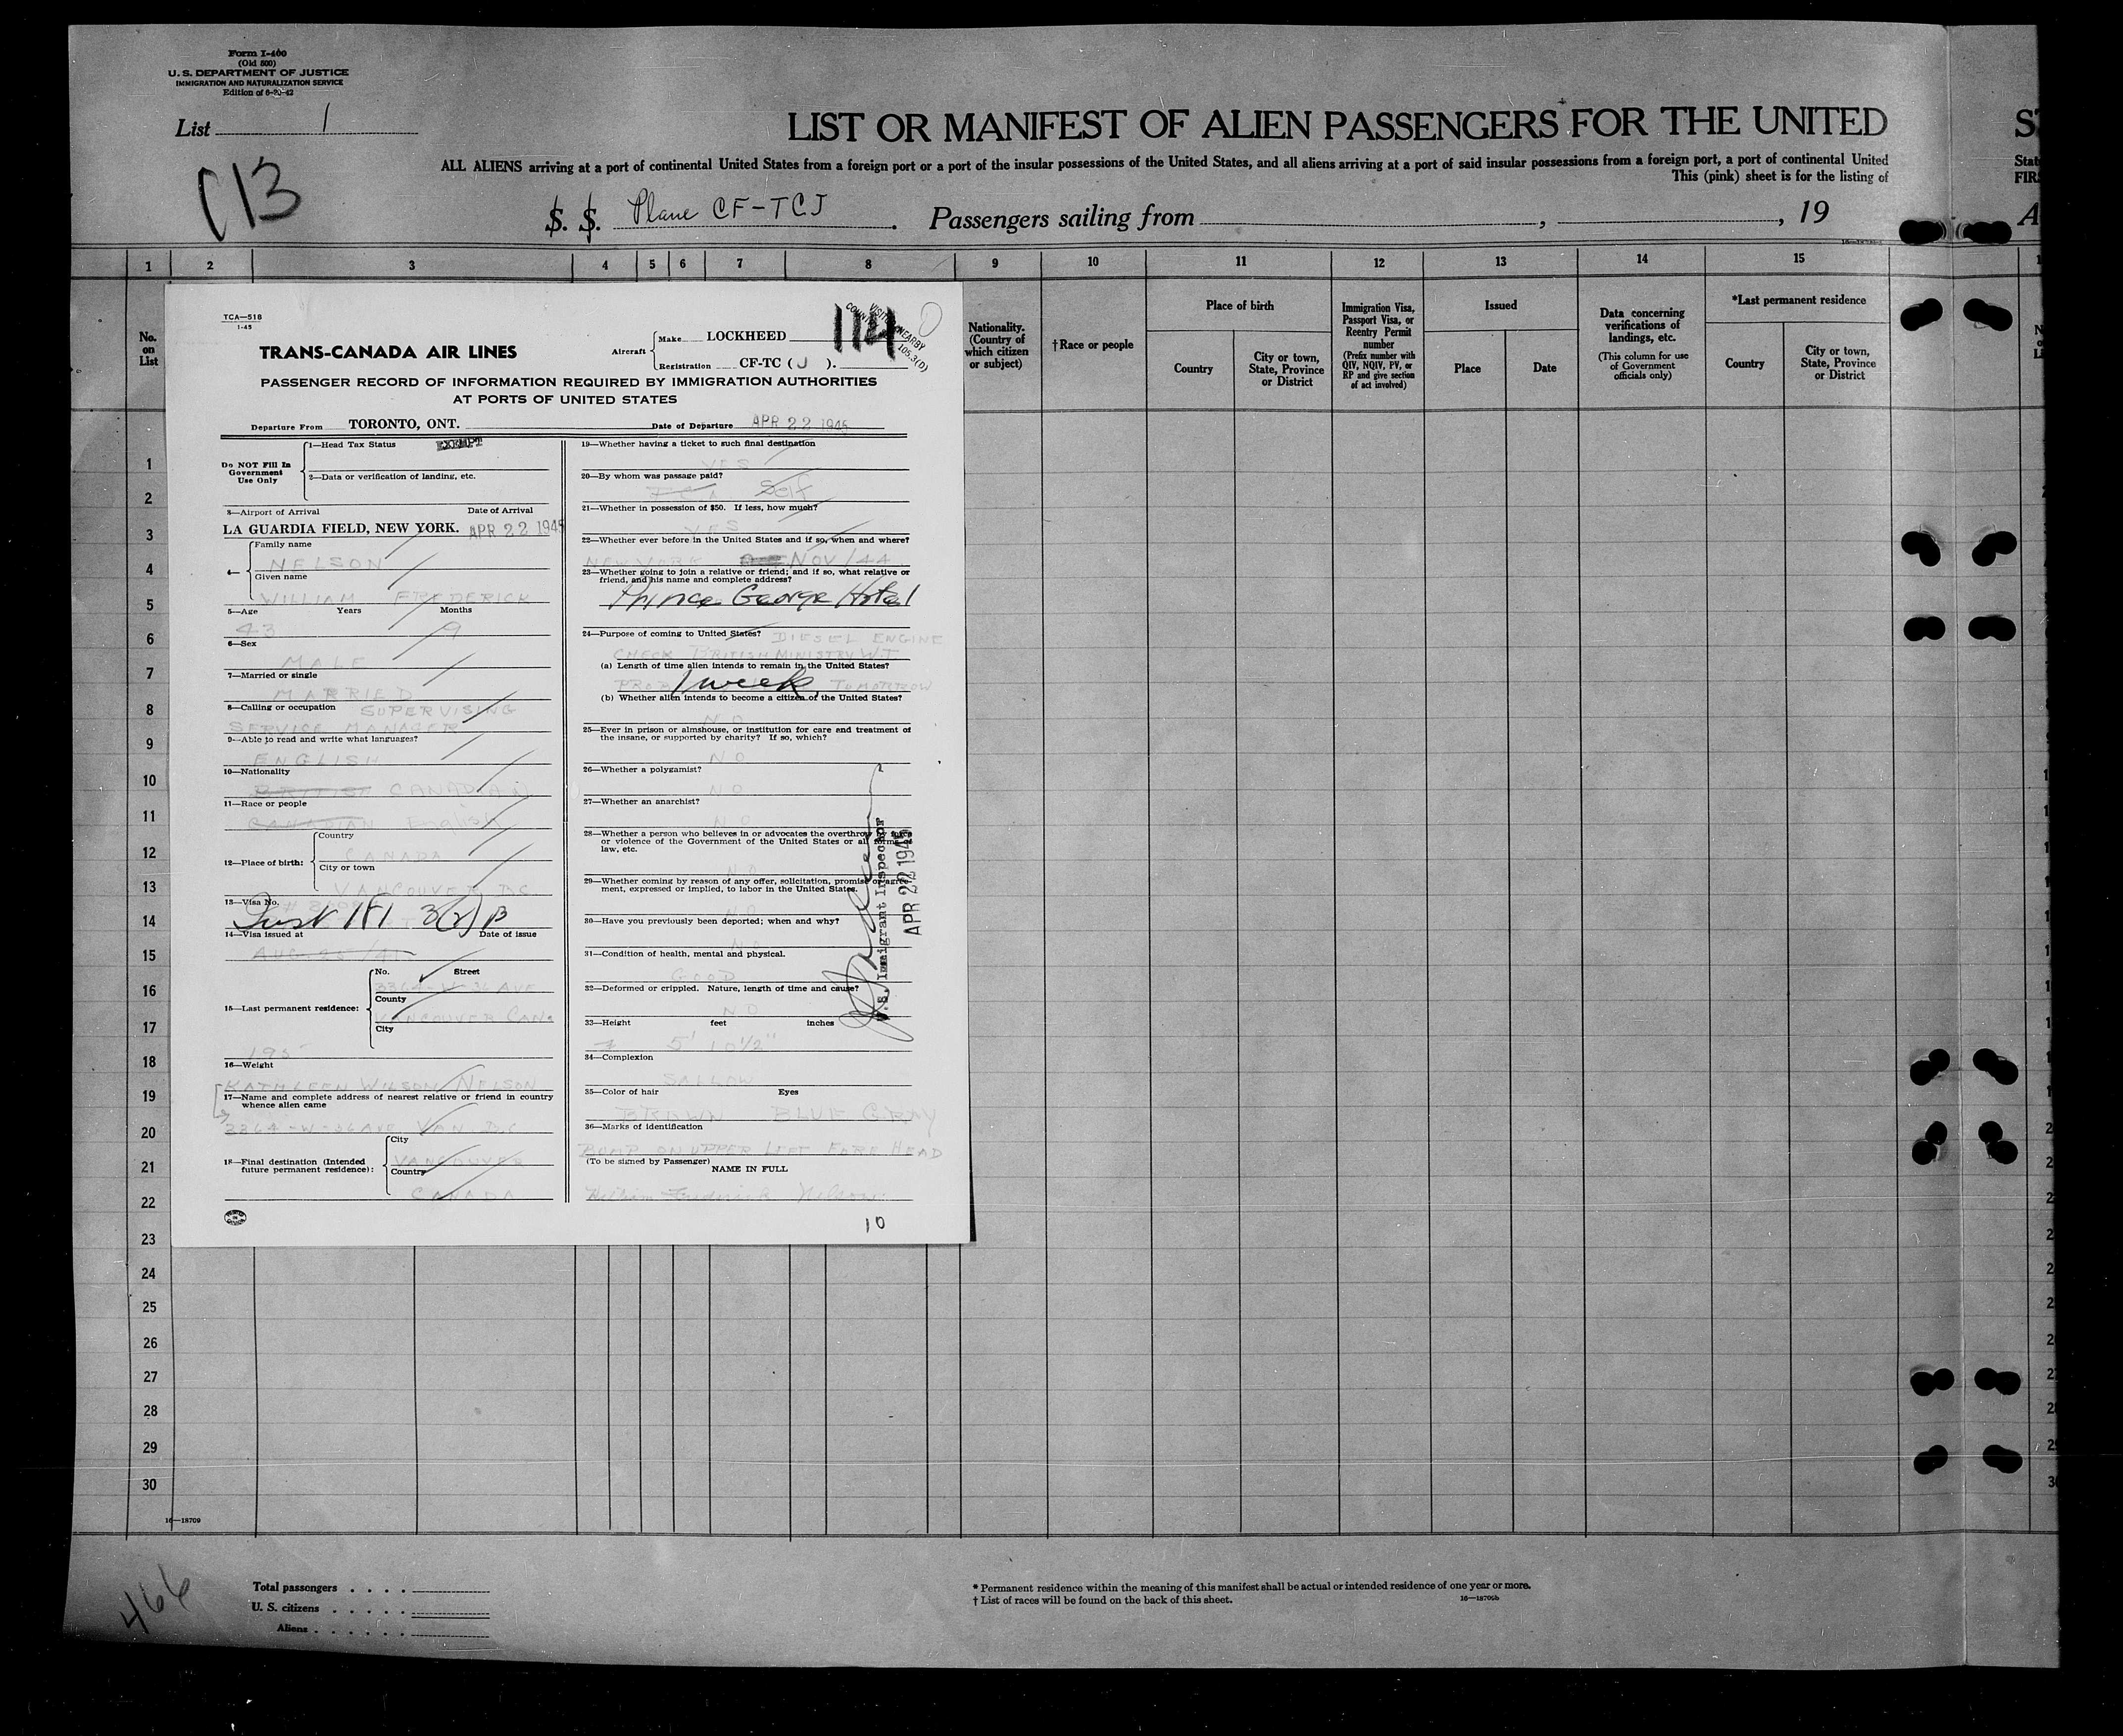 Form I-400
(Old 500)
U. S. DEPARTMENT OF JUSTICE
IMMIGRATION AND NATURALIZATION SERVICE
Edition of 6-20-42
List 1
113
LIST OR MANIFEST OF ALIEN PASSENGERS FOR THE UNITED
ALL ALIENS arriving at a port of continental United States from a foreign port or a port of the insular possessions of the United States, and all aliens arriving at a port of said insular possessions from a foreign port, a port of continental United
This (pink) sheet is for the listing of
S. S. Plane CF-TCJ. Passengers sailing from , , 19
1 2 3 4 5 6 7 8 9 10 11 12 13 14 15
No. on List
Nationality. (Country of which citizen or subject)
†Race or people
Place of birth
Country
City or town, State, Province or District
Immigration Visa, Passport Visa, or Reentry Permit number
(Prefix number with QIV, NQIV, PV, or RP and give section of act involved)
Issued
Place
Date
Data concerning verifications of landings, etc.
(This column for use of Government officials only)
*Last permanent residence
Country
City or town, State, Province or District
TCA—518
1-45
TRANS-CANADA AIR LINES
Aircraft
Make LOCKHEED
Registration CF-TC ( J ).
114
105.3(D)
PASSENGER RECORD OF INFORMATION REQUIRED BY IMMIGRATION AUTHORITIES
AT PORTS OF UNITED STATES
Departure From TORONTO, ONT. Date of Departure APR 22 1945
Do NOT Fill In
Government
Use Only
1—Head Tax Status EXEMPT
2—Data or verification of landing, etc.
3—Airport of Arrival Date of Arrival
LA GUARDIA FIELD, NEW YORK. APR 22 1945
4—
Family name
NELSON
Given name
WILLIAM FREDERICK
5—Age Years Months
43 9
6—Sex
MALE
7—Married or single
MARRIED
8—Calling or occupation SUPERVISING
SERVICE MANAGER
9—Able to read and write what languages?
ENGLISH
10—Nationality
BRITISH CANADIAN
11—Race or people
CANADIAN English
12—Place of birth:
Country
CANADA
City or town
VANCOUVER B.C.
13—Visa No.
3(2) B
14—Visa issued at Date of issue
15—Last permanent residence:
No. Street
3364-W-36 AVE
County
VANCOUVER CAN.
City
195
16—Weight
KATHLEEN WILSON NELSON
17—Name and complete address of nearest relative or friend in country
whence alien came
3364-W-36 AVE VAN. B.C.
18—Final destination (Intended
future permanent residence):
City
VANCOUVER
Country
CANADA
19—Whether having a ticket to such final destination
YES
20—By whom was passage paid?
TCA Self
21—Whether in possession of $50. If less, how much?
YES
22—Whether ever before in the United States and if so, when and where?
NEW YORK NOV/44
23—Whether going to join a relative or friend; and if so, what relative or
friend, and his name and complete address?
Prince George Hotel
24—Purpose of coming to United States? DIESEL ENGINE
CHECK BRITISH MINISTRY W.T
(a) Length of time alien intends to remain in the United States?
1 week TOMORROW
(b) Whether alien intends to become a citizen of the United States?
NO
25—Ever in prison or almshouse, or institution for care and treatment of
the insane, or supported by charity? If so, which?
NO
26—Whether a polygamist?
NO
27—Whether an anarchist?
NO
28—Whether a person who believes in or advocates the overthrow by force
or violence of the Government of the United States or all forms of
law, etc.
NO
29—Whether coming by reason of any offer, solicitation, promise or agree-
ment, expressed or implied, to labor in the United States.
NO
30—Have you previously been deported; when and why?
NO
31—Condition of health, mental and physical.
GOOD
32—Deformed or crippled. Nature, length of time and cause?
NO
33—Height feet inches
5' 10½"
34—Complexion
SALLOW
35—Color of hair Eyes
BROWN BLUE GRAY
36—Marks of identification
BUMP ON UPPER LEFT FORE HEAD
(To be signed by Passenger)
NAME IN FULL
William Frederick Nelson
U.S. Immigrant Inspector
APR 22 1945
10
1
2
3
4
5
6
7
8
9
10
11
12
13
14
15
16
17
18
19
20
21
22
23
24
25
26
27
28
29
30
16—18709
466
Total passengers
U. S. citizens
Aliens
* Permanent residence within the meaning of this manifest shall be actual or intended residence of one year or more.
† List of races will be found on the back of this sheet.
16—18709b